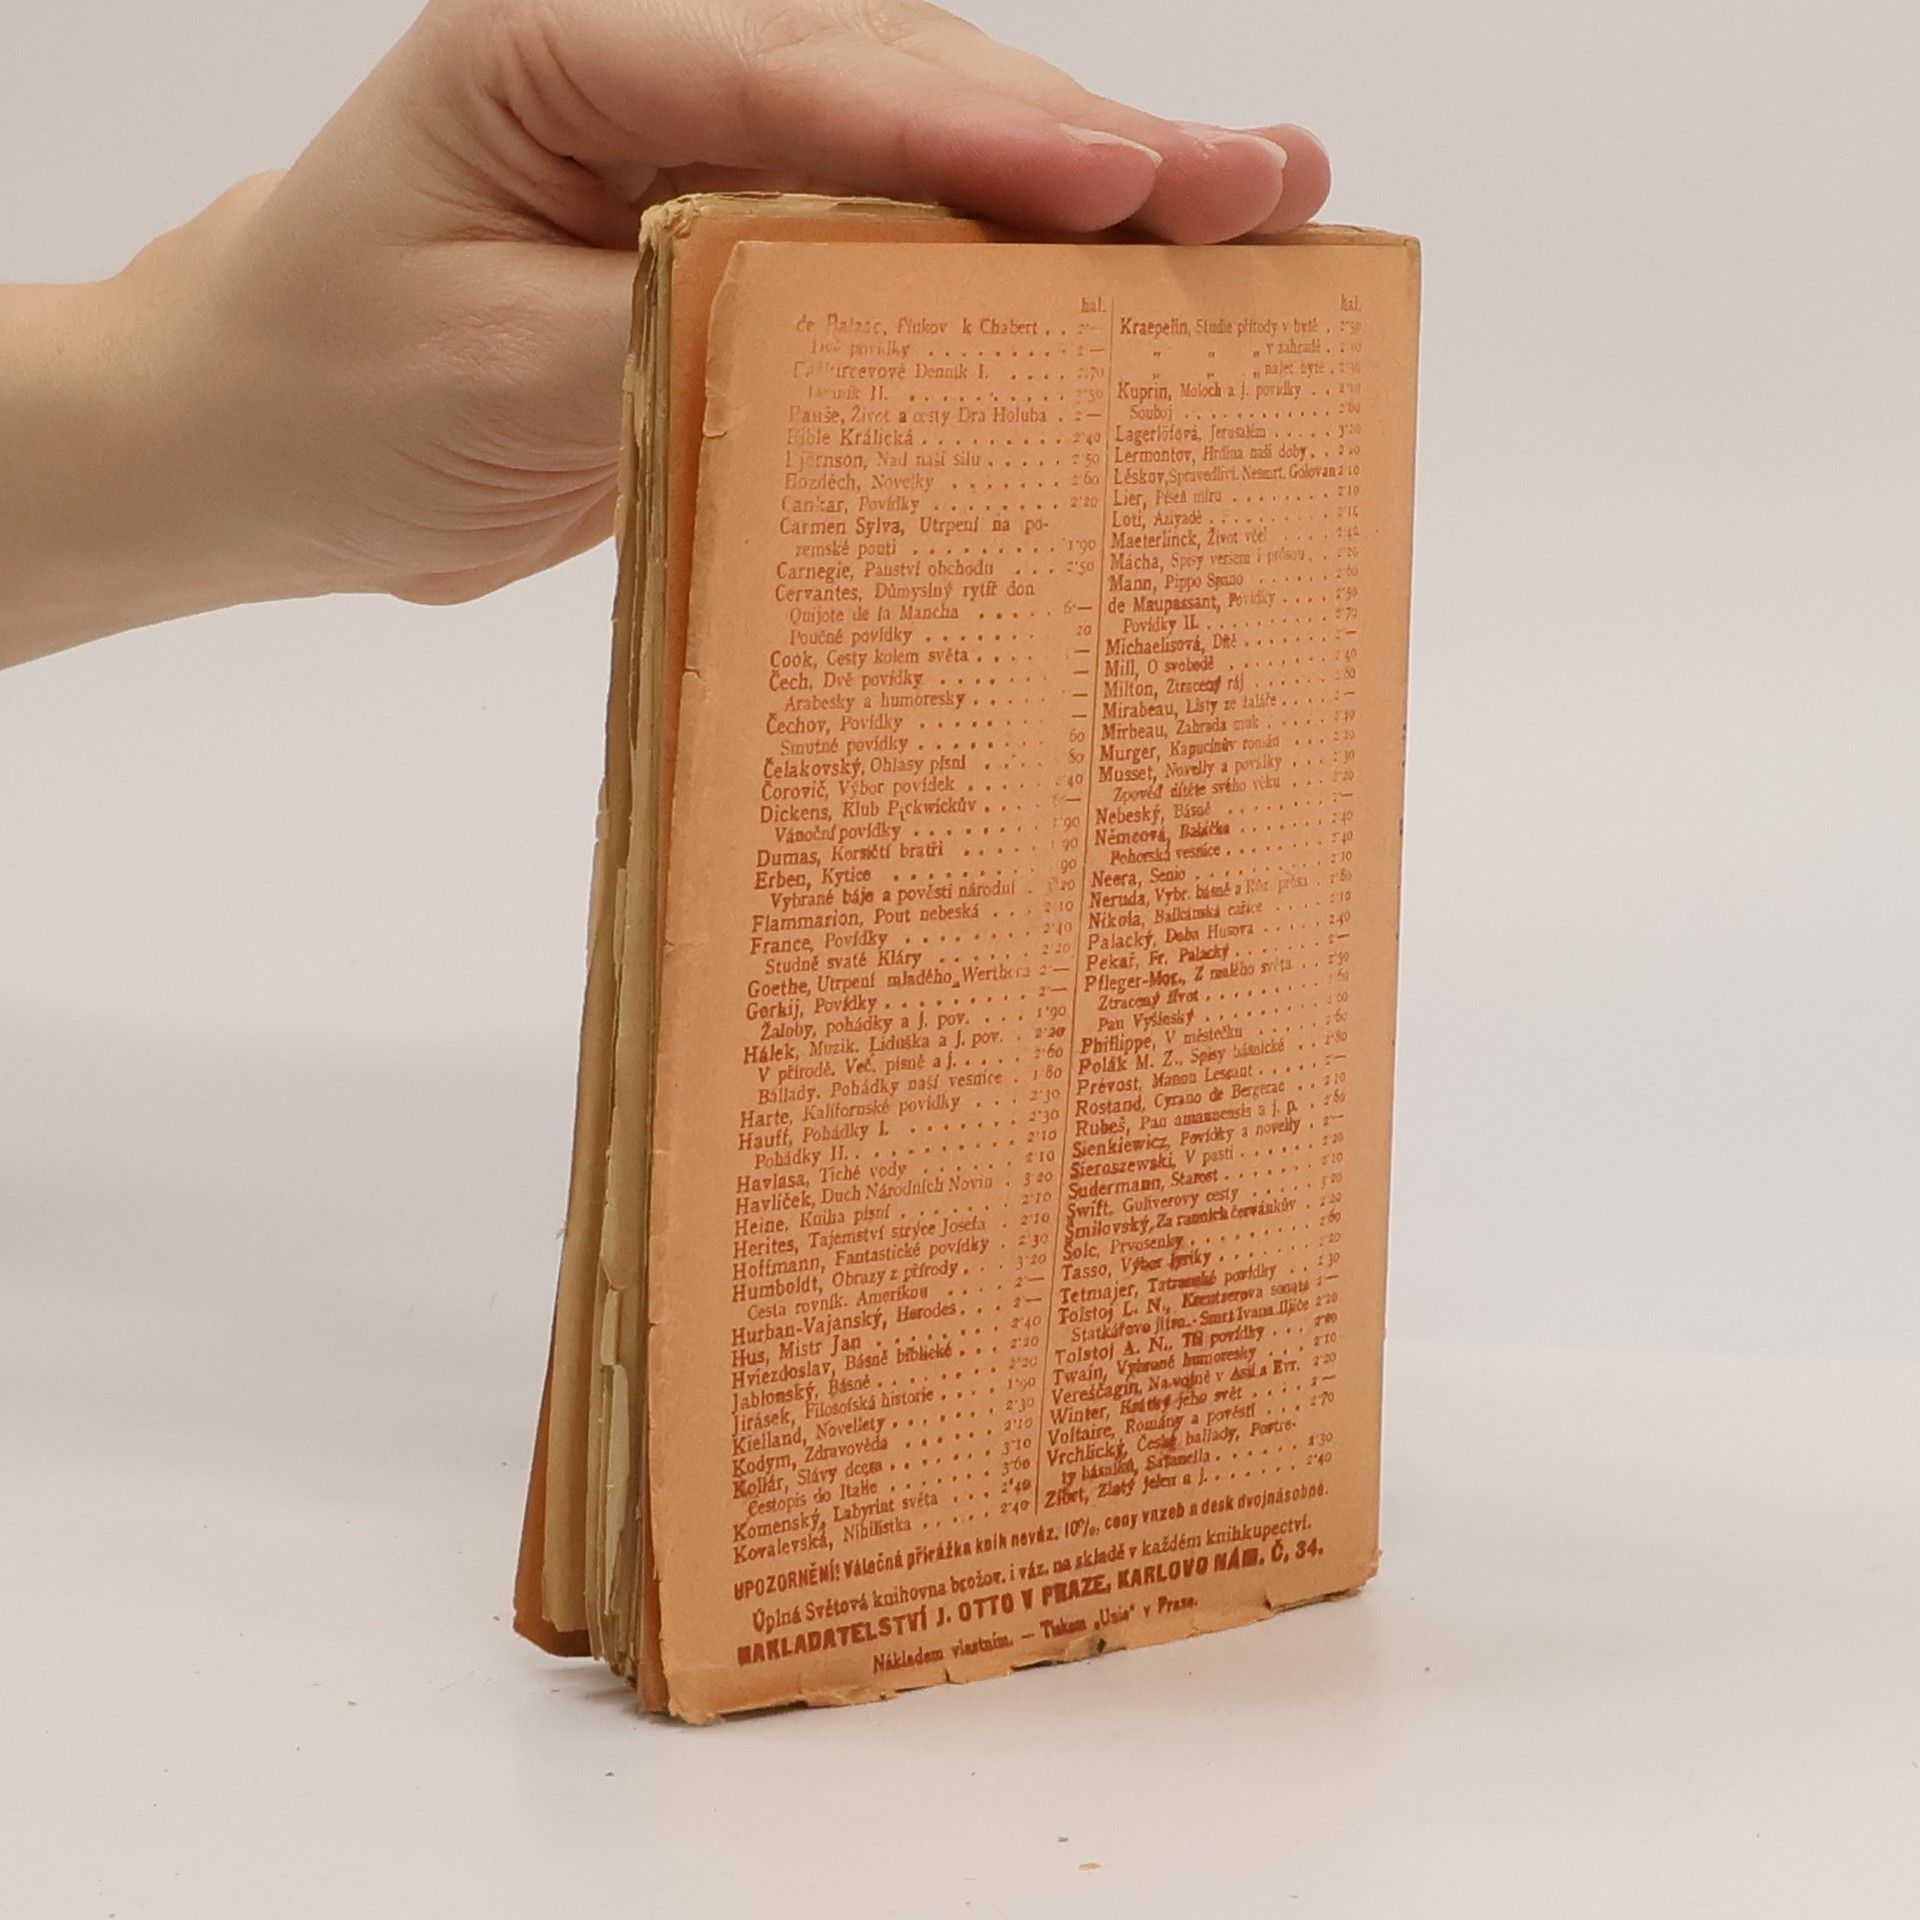 hal.
de Balzac, Plukov k Chabert . . 2·—
Dvě povídky . . . . . . . . 2·—
Denník I. . . . . 2·70
Denník II. . . . . . . . . . 2·50
Bauše, Život a cesty Dra Holuba . 2·—
Bible Králická . . . . . . . . . 2·40
Björnson, Nad naši sílu . . . . . 2·50
Bozděch, Novelky . . . . . . . 2·60
Cankar, Povídky . . . . . . . . 2·20
Carmen Sylva, Utrpení na po-
zemské pouti . . . . . . . . . 1·90
Carnegie, Panství obchodu . . . 2·50
Cervantes, Důmyslný rytíř don
Quijote de la Mancha . . . . . 6·—
Poučné povídky . . . . . . . 20
Cook, Cesty kolem světa . . . . —
Čech, Dvě povídky . . . . . . . —
Arabesky a humoresky . . . . . —
Čechov, Povídky . . . . . . . . —
Smutné povídky . . . . . . . . 60
Čelakovský, Ohlasy písní . . . . 80
Čorovič, Výbor povídek . . . . . 40
Dickens, Klub Pickwickův . . . . 6·—
Vánoční povídky . . . . . . . 1·90
Dumas, Korsičtí bratři . . . . . 1·90
Erben, Kytice . . . . . . . . . 90
Vybrané báje a pověsti národní . 3·20
Flammarion, Pout nebeská . . . 2·10
France, Povídky . . . . . . . . 2·40
Studně svaté Kláry . . . . . . 2·20
Goethe, Utrpení mladého Werthera 2·—
Gorkij, Povídky . . . . . . . . . 2·—
Žaloby, pohádky a j. pov. . . . 1·90
Hálek, Muzik. Liduška a j. pov. . 2·20
V přírodě. Več. písně a j. . . . . 2·60
Ballady. Pohádky naší vesnice . 1·80
Harte, Kalifornské povídky . . . 2·30
Hauff, Pohádky I. . . . . . . . 2·30
Pohádky II. . . . . . . . . . 2·10
Havlasa, Tiché vody . . . . . . 2·10
Havlíček, Duch Národních Novin . 3·20
Heine, Kniha písní . . . . . . . 2·10
Herites, Tajemství strýce Josefa . 2·10
Hoffmann, Fantastické povídky . 2·30
Humboldt, Obrazy z přírody . . . 3·20
Cesta rovník. Amerikou . . . . 2·—
Hurban-Vajanský, Herodes . . . 2·—
Hus, Mistr Jan . . . . . . . . . 2·40
Hviezdoslav, Básně biblické . . . 2·20
Jablonský, Básně . . . . . . . . 2·20
Jirásek, Filosofská historie . . . . 1·90
Kielland, Novellety . . . . . . . 2·30
Kodym, Zdravověda . . . . . . 2·10
Kollár, Slávy dcera . . . . . . . 3·10
Cestopis do Italie . . . . . . . 3·60
Komenský, Labyrint světa . . . 2·40
Kovalevská, Nihilistka . . . . . 2·40
hal.
Kraepelin, Studie přírody v bytě . 2·50
„ „ „ v zahradě . 2·10
„ „ „ na let. bytě . 2·30
Kuprin, Moloch a j. povídky . .
Souboj . . . . . . . . . . . 2·60
Lagerlöfová, Jerusalém . . . . . 3·20
Lermontov, Hrdina naší doby . . 2·20
Léskov, Spravedliví. Nesmrt. Golovan 2·10
Lier, Píseň míru . . . . . . . . 2·10
Loti, Aziyadé . . . . . . . . .
Maeterlinck, Život včel . . . .
Mácha, Spisy veršem i prósou . . 2·20
Mann, Pippo Spano . . . . . . 2·60
de Maupassant, Povídky . . . . 2·50
Povídky II. . . . . . . . . . 2·70
Michaelisová, Dítě . . . . . . . 2·—
Mill, O svobodě . . . . . . . . 2·40
Milton, Ztracený ráj . . . . . . 2·60
Mirabeau, Listy ze žaláře . . . . 2·—
Mirbeau, Zahrada muk . . . . . 2·40
Murger, Kapucínův román . . . 2·20
Musset, Novelly a povídky . . . 2·30
Zpověď dítěte svého věku . . . 2·20
Nebeský, Básně . . . . . . . . 2·—
Němcová, Babička . . . . . . . 2·40
Pohorská vesnice . . . . . . . 2·40
Neera, Senio . . . . . . . . . 2·10
Neruda, Vybr. básně a Růz. prósa . 1·80
Nikola, Balkánská cařice . . . . 2·10
Palacký, Doba Husova . . . . . 2·40
Pekař, Fr. Palacký . . . . . . . 2·—
Pfleger-Mor., Z malého světa . . 2·50
Ztracený život . . . . . . . . ·60
Pan Vyšínský . . . . . . . . ·60
Philippe, V městečku . . . . . 2·60
Polák M. Z., Spisy básnické . . 2·80
Prévost, Manon Lescaut . . . . . 2·—
Rostand, Cyrano de Bergerac . . 2·10
Rubeš, Pan amanuensis a j. p. . 2·80
Sienkiewicz, Povídky a novelly . 2·—
Sieroszewski, V pasti . . . . . . 2·20
Sudermann, Starost . . . . . . . 2·10
Swift, Guliverovy cesty . . . . . 3·20
Šmilovský, Za ranních červánkův . 2·20
Šolc, Prvosenky . . . . . . . . 2·60
Tasso, Výbor lyriky . . . . . . . 2·20
Tetmajer, Tatranské povídky . . 2·30
Tolstoj L. N., Kreutzerova sonata 2·—
Statkářovo jitro.-Smrt Ivana Iljiče 2·20
Tolstoj A. N., Tři povídky . . . 2·20
Twain, Vybrané humoresky . . . 2·10
Vereščagin, Na vojně v Asii a Evr. 2·20
Winter, Krátký jeho svět . . . . 2·—
Voltaire, Romány a pověsti . . . 2·70
Vrchlický, České ballady, Portre-
ty básníků, Satanella . . . . . . 2·30
Zibrt, Zlatý jelen a j. . . . . . . 2·40
UPOZORNĚNÍ! Válečná přirážka knih neváz. 10%, ceny vazeb a desk dvojnásobné.
Úplná Světová knihovna brožov. i váz. na skladě v každém knihkupectví.
NAKLADATELSTVÍ J. OTTO V PRAZE, KARLOVO NÁM. Č. 34.
Nákladem vlastním. — Tiskem „Unie“ v Praze.